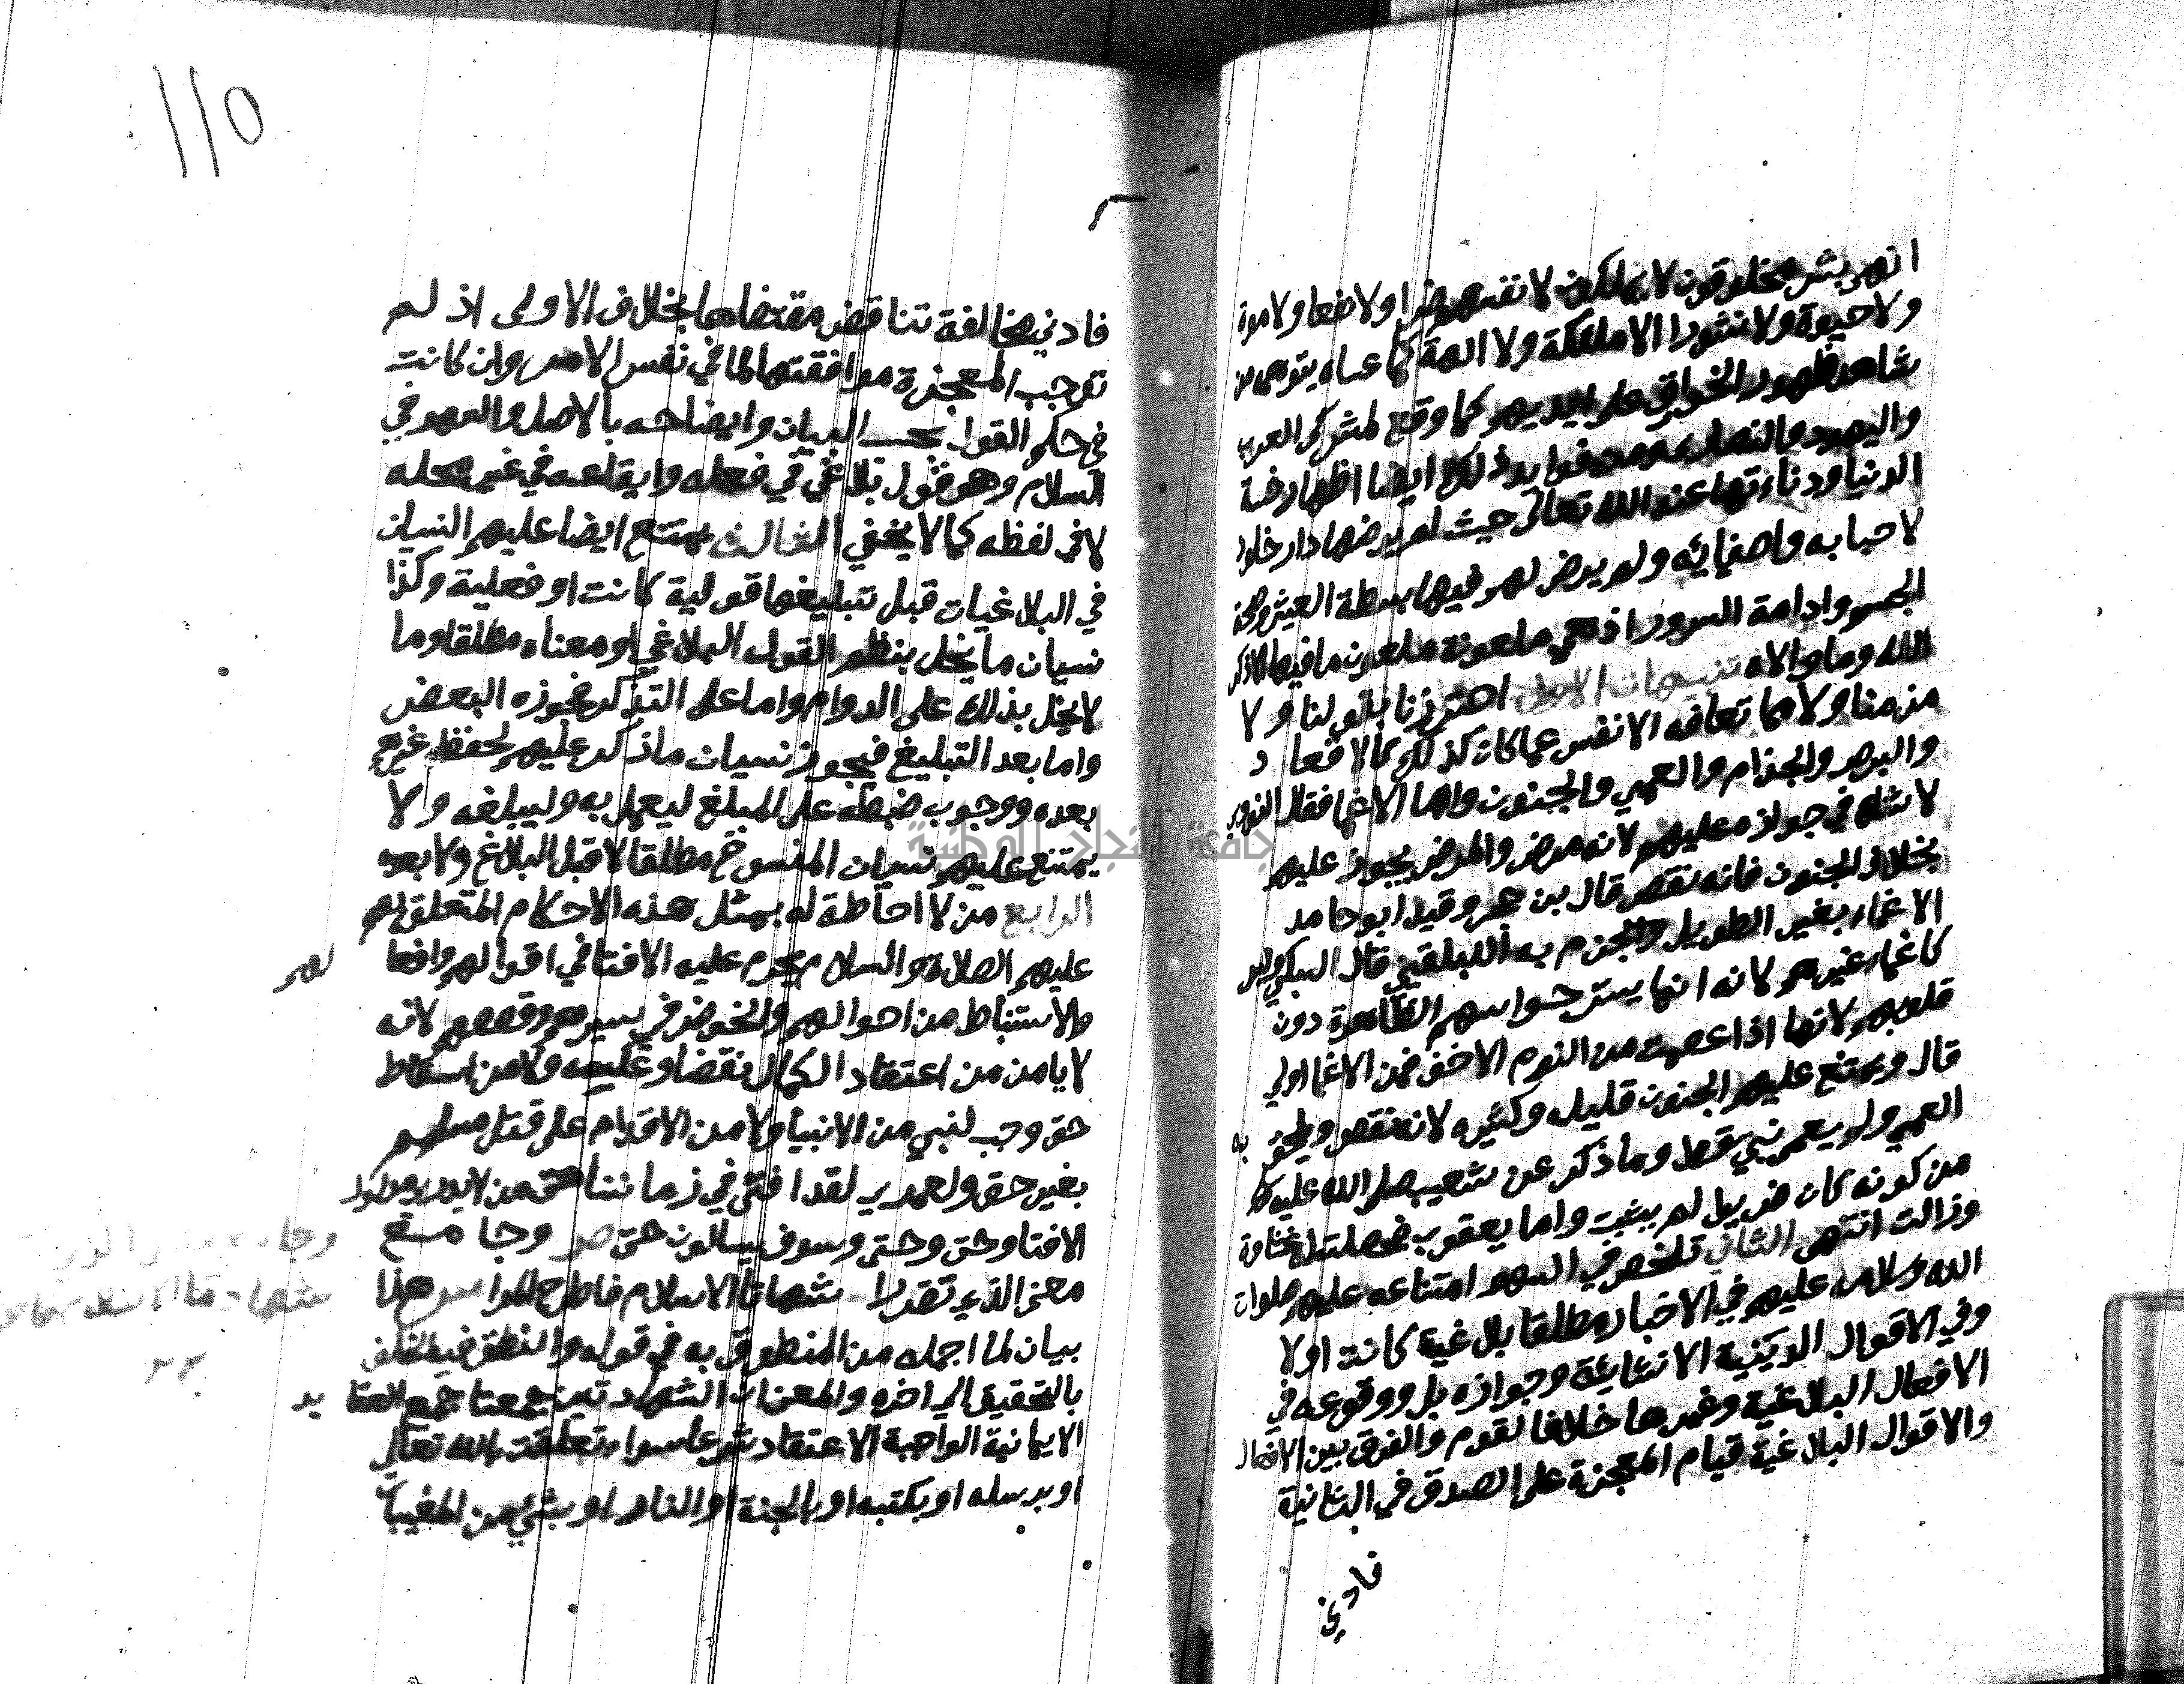 انهم بشر مخلوقون لا يملكون لانفسهم ضرا ولا نفعا ولا موتا
ولا حيوة ولا نشورا لا ملئكة ولا الهة كما عساه يتوهم من
شاهد ظهور الخوارق على ايديهم كما وقع لمشركى العرب
واليهود والنصارى ومن فوايد ذلك ايضا اظهار خسة
الدنيا ودناءتها عند الله تعالى حيث لم يرضها دار خلود
لاحبابه واصفيائه ولم يرض لهم فيها بسطة العيش وصحة
الجسم وادامة السرور اذ هي ملعونة ملعون ما فيها الا ذكر
الله وما والاه تنبيهات الاول احترزنا بقولنا ولا
مزمنا ولا مما تعافه الانفس عما كان كذلك كالاقعاد
والبرص والجذام والعمي والجنون واما الاغما فقال النووي
لا شك في جوازه عليهم لانه مرض والمرض يجوز عليهم
بخلاف الجنون فانه نقص قال بن حجر وقيد ابو حامد
الاغماء بغير الطويل وجزم به البلقيني قال السبكي وليس
كاغماء غيرهم لانه انما يستر حواسهم الظاهرة دون
قلوبهم لانها اذا عصمت من النوم الاخف فمن الاغما اولي
قال ويمتنع عليهم الجنون قليله وكثيره لانه نقص ويلحق به
العمي ولم يعم نبي قط وما ذكر عن شعيب صلى الله عليه
من كونه كان ضريرا لم يثبت واما يعقوب فحصلت له غشاوة
وزالت انتهى الثاني تلخص في السهو امتناعه عليهم صلوات
الله وسلامه عليهم في الاخبار مطلقا بلاغية كانت او لا
وفي الاقوال الدينية الانشائية وجوازه بل ووقوعه في
الافعال البلاغية وغيرها خلافا لقوم والفرق بين الافعال
والاقوال البلاغية قيام المعجزة على الصدق في الثانية
فادني
١١٥
فادني مخالفة تناقض مقتضاها بخلاف الاولى اذ لم
توجب المعجزة موافقتها لما في نفس الامر وان كانت
في حكم القول بحسب البيان وايضاحه بالاصل والسهو في
السلام وهو قول بلاغي في فعله وايقاعه في غير محله
لا في لفظه كما لا يخفي الثالث يمتنع ايضا عليهم النسيان
في البلاغيات قبل تبليغها قولية كانت او فعلية وكذا
نسيان ما يخل بنظم القول البلاغي او معناه مطلقا وما
لا يخل بذلك على الدوام واما على التذكر فجوزه البعض
واما بعد التبليغ فيجوز نسيان ما ذكر عليهم لحفظ غيرهم
بعده ووجوب ضبطه على المبلغ ليعمل به وليبلغه ولا
يمتنع عليهم نسيان المنسوخ مطلقا لا قبل البلاغ ولا بعده
الرابع من لا احاطة له بمثل هذه الاحكام المتعلقة بهم
عليهم الصلاة والسلام يحرم عليه الافتا في اقوالهم وافعا لهم
والاستنباط من احوالهم والخوض في سيرهم وقصصهم لانه
لا يامن من اعتقاد الكمال نقضا وعكسه ولا من اسقاط
حق وجب لنبي من الانبيا ولا من الاقدام على قتل مسلم
بغير حق ولعمري لقد افتي في زماننا حتى من لا
الافتا وحتى وحتى وسوف يسالون حتى ص وجامع
معنى الذي تقررا شهادتا الاسلام فاطرح المرا س هذا
بيان لما اجمله من المنطوق به في قوله والنطق فيه الخلف
بالتحقيق الى اخره والمعنى ان الشهادتين جمعتا جميع العقا يد
الايمانية الواجبة الاعتقاد شرعا سواء تعلقت بالله تعالى
او برسله او بكتبه او بالجنة او النار او بشي من المغيبات